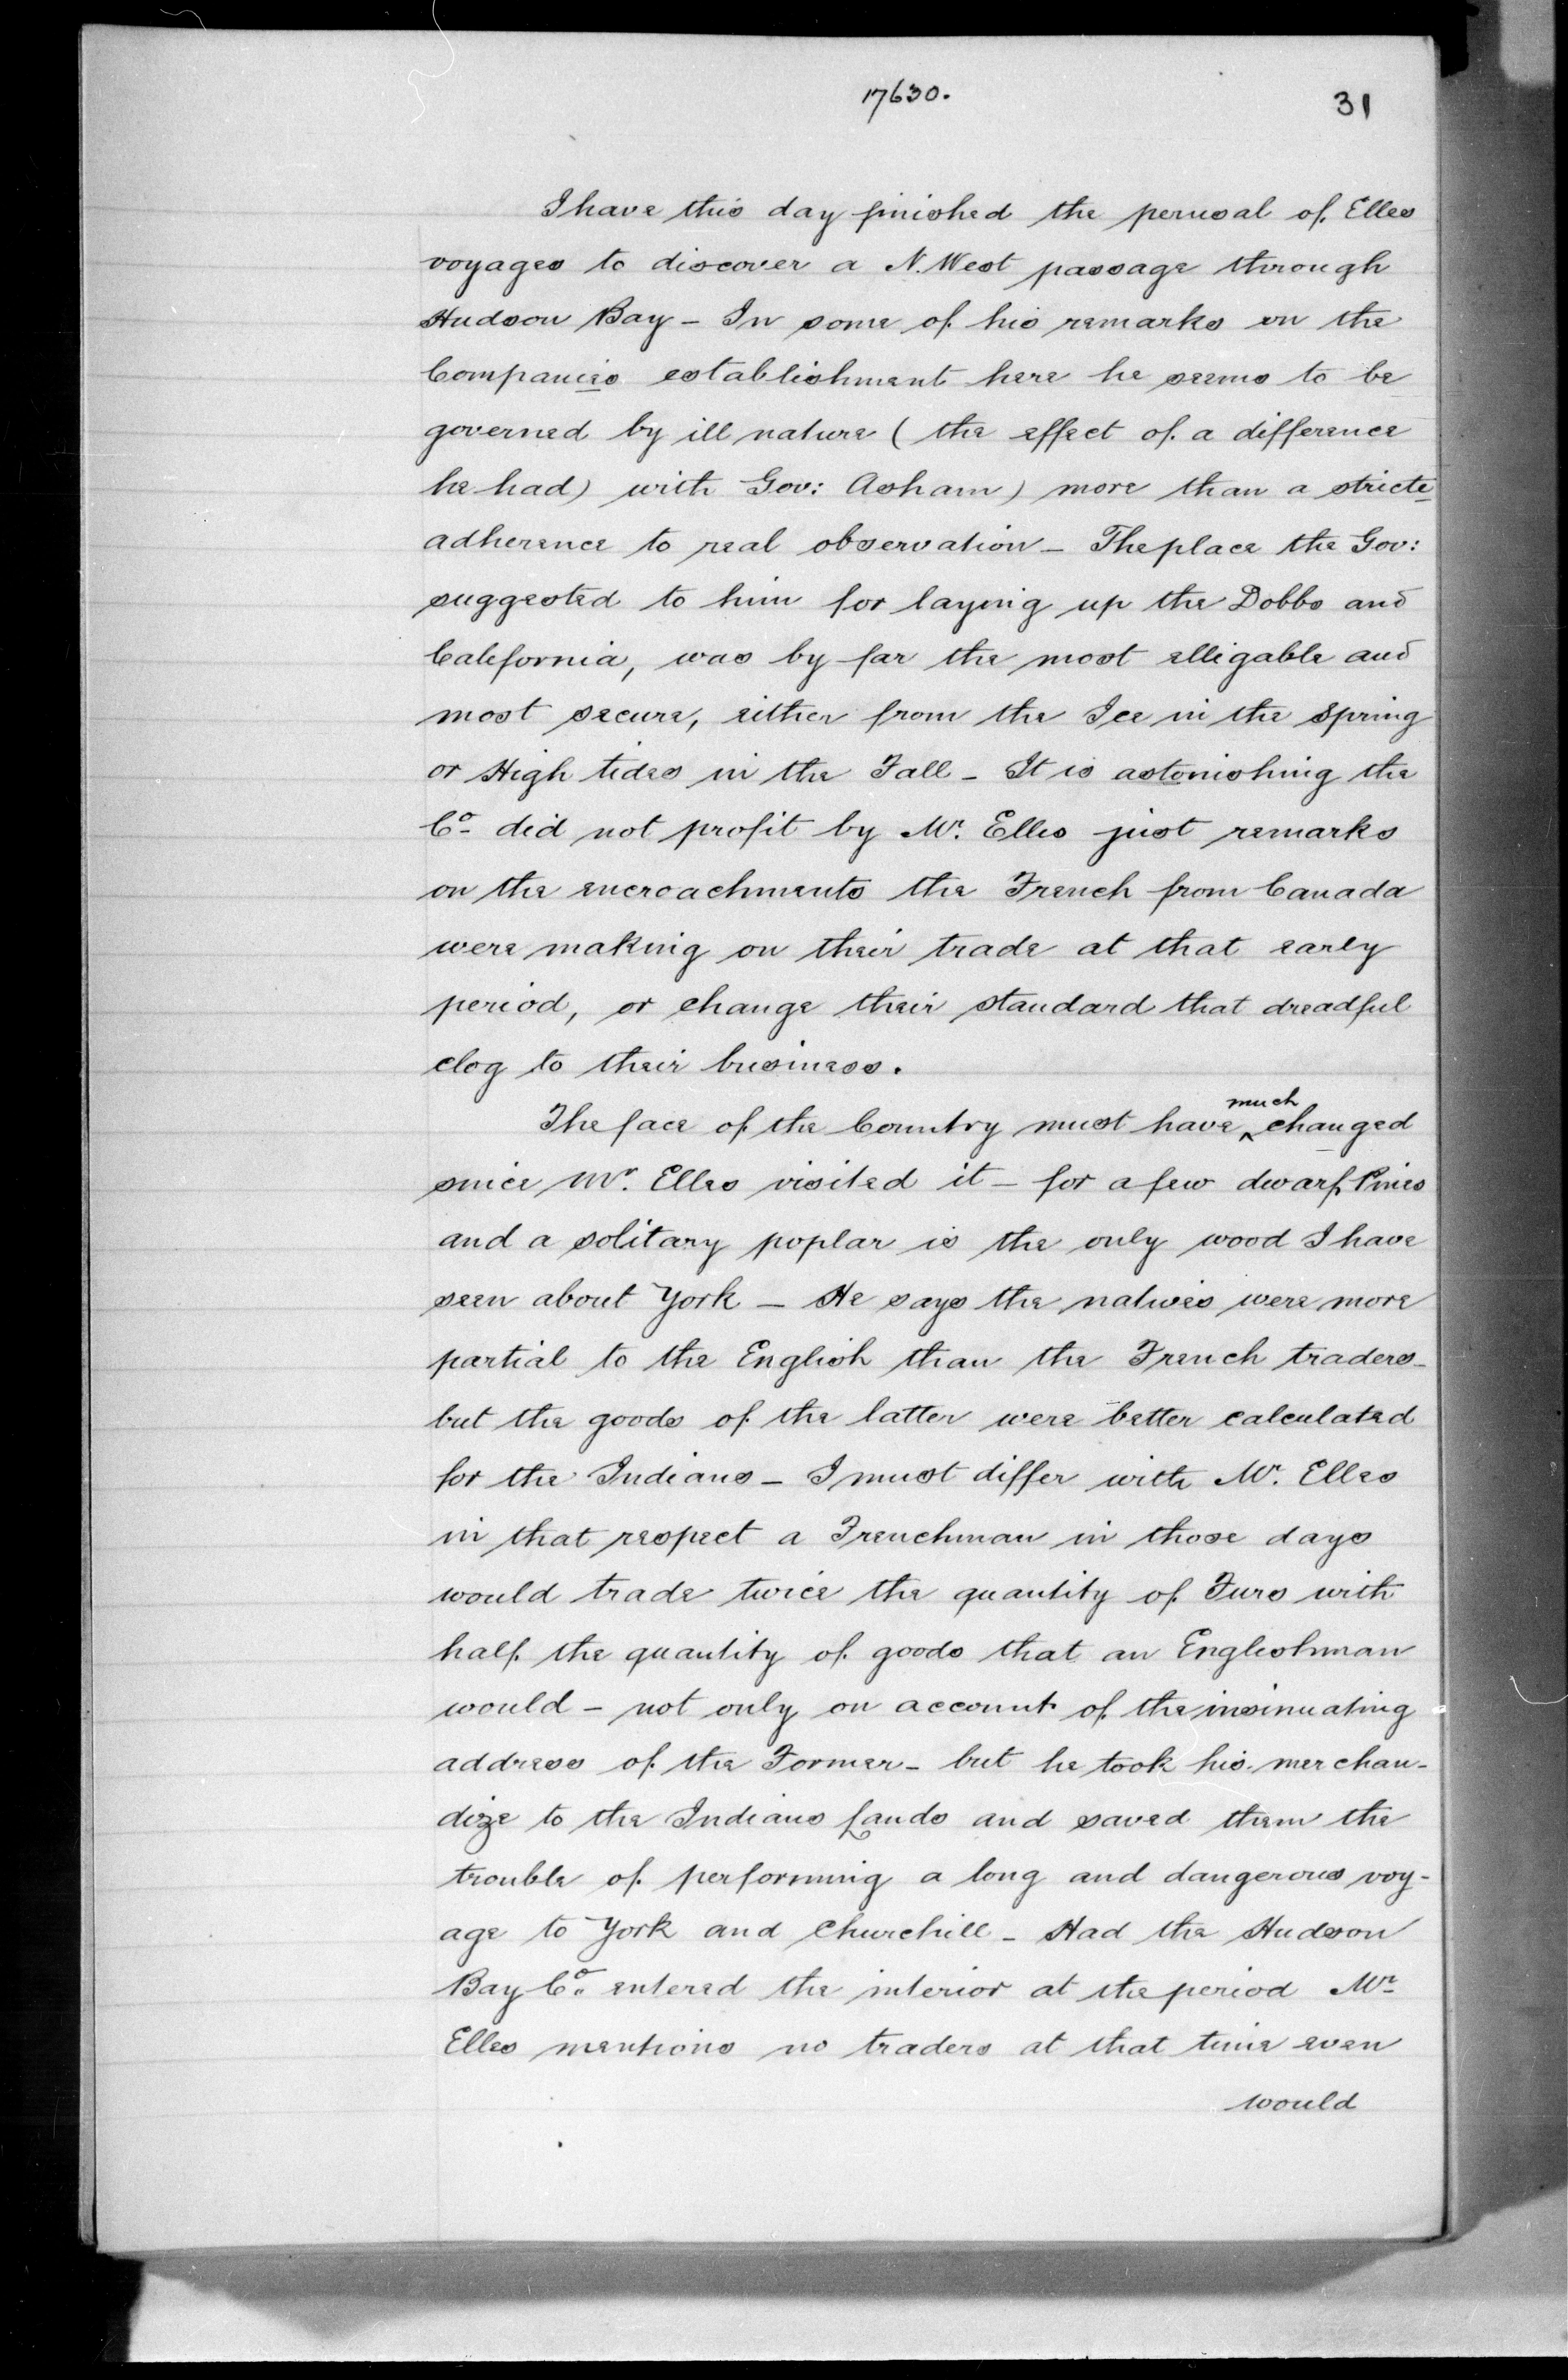 17630.
31
I have this day finished the perusal of Elles
voyages to discover a N. West passage through
Hudson Bay - In some of his remarks on the
Companies establishment here he seems to be
governed by ill nature (the effect of a difference
he had) with Gov: Asham) more than a stricte
adherence to real observation - The place the Gov:
suggested to him for laying up the Dobbs and
California, was by far the most elligable and
most secure, either from the Ice in the Spring
or High tides in the Fall - It is astonishing the
Co. did not profit by Mr. Elles just remarks
on the encroachments the French from Canada
were making on their trade at that early
period, or change their standard that dreadful
clog to their business.
The face of the Country must have ^much changed
since Mr. Elles visited it - for a few dwarf Pines
and a solitary poplar is the only wood I have
seen about York - He says the natives were more
partial to the English than the French traders -
but the goods of the latter were better calculated
for the Indians - I must differ with Mr. Elles
in that respect a Frenchman in those days
would trade twice the quantity of Furs with
half the quantity of goods that an Englishman
would - not only on account of the insinuating
address of the Former - but he took his merchan-
dize to the Indians Lands and saved them the
trouble of performing a long and dangerous voy-
age to York and Churchill - Had the Hudson
Bay Co. entered the interior at the period Mr.
Elles mentions no traders at that time even
would